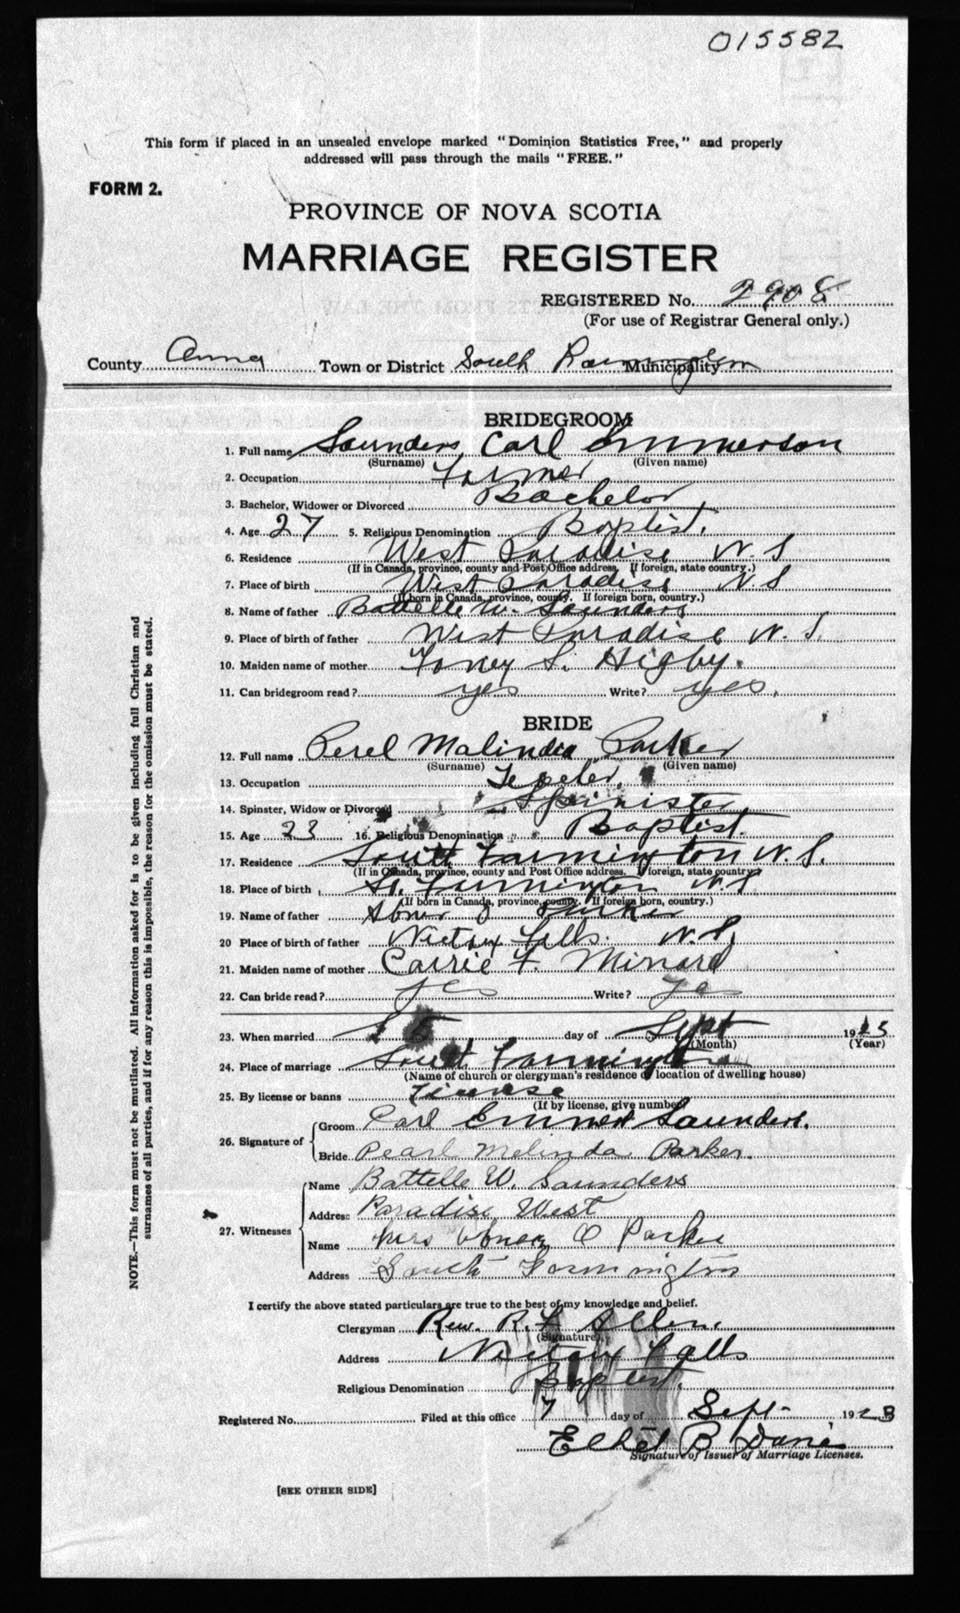 015582
This form if placed in an unsealed envelope marked "Dominion Statistics Free," and properly
addressed will pass through the mails "FREE."
FORM 2.
PROVINCE OF NOVA SCOTIA
MARRIAGE REGISTER
REGISTERED No. 2908
(For use of Registrar General only.)
County Anna Town or District South Municipality
BRIDEGROOM
1. Full name Saunders, Carl Emmerson
(Surname) (Given name)
2. Occupation Farmer
3. Bachelor, Widower or Divorced Bachelor
4. Age 27 5. Religious Denomination Baptist.
6. Residence West Paradise N. S
(If in Canada, province, county and Post Office address. If foreign, state country.)
7. Place of birth West Paradise N. S
(If born in Canada, province, county. If foreign born, country.)
8. Name of father Battelle W. Saunders
9. Place of birth of father West Paradise N. S.
10. Maiden name of mother S. Higby.
11. Can bridegroom read? yes Write? yes.
BRIDE
12. Full name Perel Malinda Parker
(Surname) (Given name)
13. Occupation
14. Spinster, Widow or Divorced Spinister
15. Age 23 16. Religious Denomination Baptist.
17. Residence South Farmington N. S.
(If in Canada, province, county and Post Office address. If foreign, state country)
18. Place of birth So. Farmington N. S.
(If born in Canada, province, county. If foreign born, country.)
19. Name of father Abner J Parker
20 Place of birth of father Nictaux Falls. N. S.
21. Maiden name of mother Carrie F. Minard
22. Can bride read? yes Write? yes
23. When married day of Sept 19
(Month) (Year)
24. Place of marriage South Farmington
(Name of church or clergyman's residence or location of dwelling house)
25. By license or banns License
(If by license, give number)
26. Signature of Groom Carl Emmerson Saunders.
Bride Pearl Melinda Parker.
27. Witnesses Name Battelle W. Saunders
Address Paradise West
Name Mrs Abner Parker
Address South Farmington
I certify the above stated particulars are true to the best of my knowledge and belief.
Clergyman Rew. R. F. Allen.
(Signature)
Address Nictaux Falls
Religious Denomination Baptist.
Registered No. Filed at this office 7 day of Sept. 1923
Ethel B
Signature of Issuer of Marriage Licenses.
[SEE OTHER SIDE]
NOTE.—This form must not be mutilated. All information asked for is to be given including full Christian and
surnames of all parties, and if for any reason this is impossible, the reason for the omission must be stated.